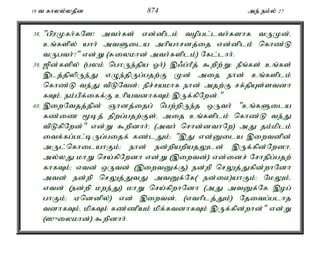 19 வ காலல்லதீன 874 அந் நம்ல் 27
38. "பிரமுகர்களே! அவர்கள் என்னிடம் வழிபட்டவர்களாக வருமுன்,
உங்களில் யார் அவளுடைய அரியாசனத்தை என்னிடம் கொண்டு
வருபவர்?" என்று (சுலைமான் அவர்களிடம்) கேட்டார்.
39. ஜின்களில் (பலம் பொருந்திய ஓர்) இஃப்ரீத் கூறிற்று: நீங்கள் உங்கள்
இடத்திலிருந்து எழுந்திருப்பதற்கு முன் அதை நான் உங்களிடம்
கொண்டு வந்து விடுவேன்; நிச்சயமாக நான் அதற்கு சக்தியுள்ளவனா
கவும், நம்பிக்கைக்கு உரியவனாகவும் இருக்கிறேன்."
40. இறைவேதத்தின் ஞானத்தைப் பெற்றிருந்த ஒருவர் "உங்களுடைய
கண்ணை மூடித் திறப்பதற்குள், அதை உங்களிடம் கொண்டு வந்து
விடுகிறேன்" என்று கூறினார்; (அவர் சொன்னவாறே) அது தம்மிடம்
வைக்கப்பட்டிருப்பதைக் கண்டதும்: "இது என்னுடைய இறைவனின்
அருட்கொடையாகும்; நான் நன்றியறிதலுடன் இருக்கின்றேனா,
அல்லது மாறு செய்கிறேனா என்று (இறைவன்) என்னைச் சோதிப்பதற்
காகவும்; எவன் ஒருவன் (இறைவனுக்கு) நன்றி செலுத்துகின்றானோ
அவன் நன்றி செலுத்துவது அவனுக்கே( நன்மை)யாகும்; மேலும்,
எவன் (நன்றி மறந்து) மாறு செய்கிறானோ (அது அவனுக்கே இழப்
பாகும்; ஏனெனில்) என் இறைவன், (எவரிடத்தும்) தேவைப்படாத
வனாகவும், மிகவும் கண்ணியம் மிக்கவனாகவும் இருக்கின்றான்" என்று
(ஸுலைமான்) கூறினார்.